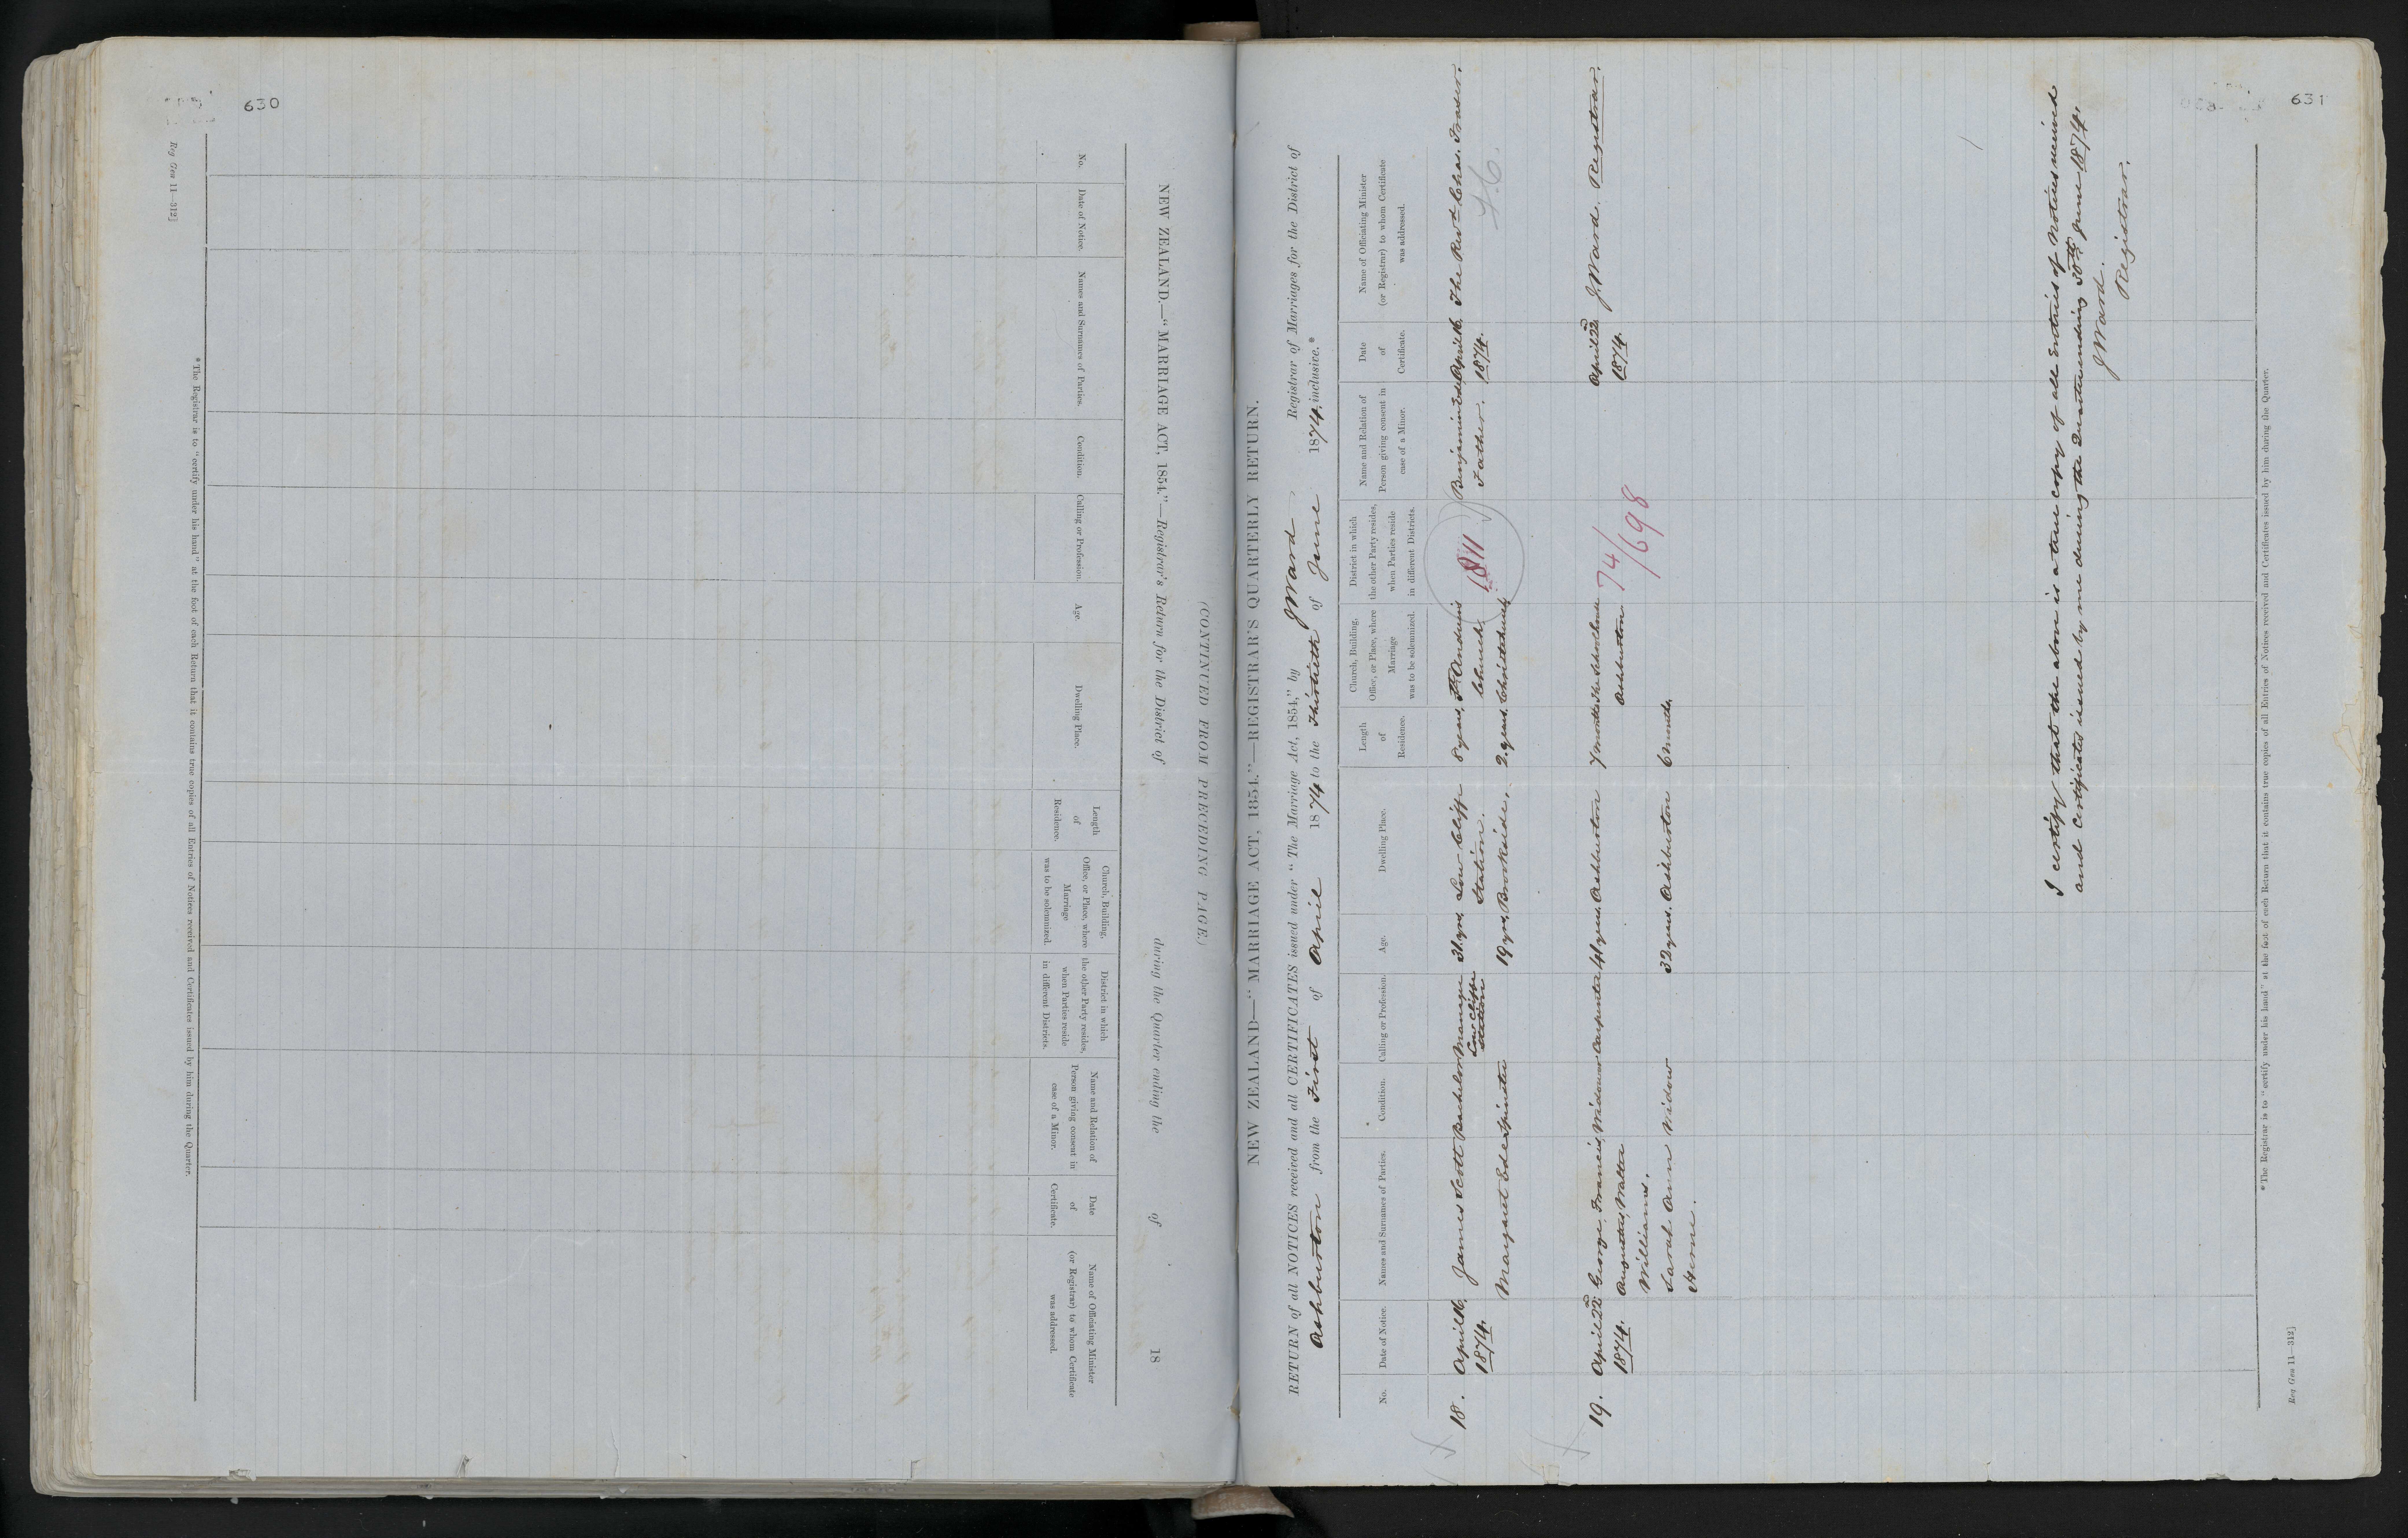 630
Reg Gen 11—312]
NEW ZEALAND.—“MARRIAGE ACT, 1854.”—Registrar's Return for the District of during the Quarter ending the of 18
(CONTINUED FROM PRECEDING PAGE.)
No.
Date of Notice.
Names and Surnames of Parties.
Condition.
Calling or Profession.
Age.
Dwelling Place.
Length
of
Residence.
Church, Building,
Office, or Place, where
Marriage
was to be solemnized.
District in which
the other Party resides,
when Parties reside
in different Districts.
Name and Relation of
Person giving consent in
case of a Minor.
Date
of
Certificate.
Name of Officiating Minister
(or Registrar) to whom Certificate
was addressed.
* The Registrar is to “certify under his hand” at the foot of each Return that it contains true copies of all Entries of Notices received and Certificates issued by him during the Quarter.
631
NEW ZEALAND—“MARRIAGE ACT, 1854.”—REGISTRAR'S QUARTERLY RETURN.
RETURN of all NOTICES received and all CERTIFICATES issued under “The Marriage Act, 1854,” by J Ward Registrar of Marriages for the District of
Ashburton from the First of April 1874 to the Thirtieth of June 1874, inclusive.*
No.
Date of Notice.
Names and Surnames of Parties.
Condition.
Calling or Profession.
Age.
Dwelling Place.
Length
of
Residence.
Church, Building,
Office, or Place, where
Marriage
was to be solemnized.
District in which
the other Party resides,
when Parties reside
in different Districts.
Name and Relation of
Person giving consent in
case of a Minor.
Date
of
Certificate.
Name of Officiating Minister
(or Registrar) to whom Certificate
was addressed.
18. April 16. James Scott Bachelor Manager 31 yrs. Low Cliffe 8 years St. Andrews Benjamin Ede April 16. The Revd. Chas. Fraser.
1874. Low Cliffe Station Station. Church. 1811 Father. 1874.
Margaret Ede Spinster 19 yrs. Brookside. 2 years. Christchurch
19. April 22nd George, Francis, Widower Carpenter 41 years. Ashburton 7 months The Schoolhouse 74/698 April 22nd J. Ward. Registrar.
1874. Augustus, Walter Ashburton 1874.
Williams.
Sarah Ann Widow 32 years. Ashburton 6 months
Herne.
I certify that the above is a true copy of all entries of Notices received
and certificates issued by me during the Quarter ending 30th June 1874.
J Ward.
Registrar.
* The Registrar is to “certify under his hand” at the foot of each Return that it contains true copies of all Entries of Notices received and Certificates issued by him during the Quarter.
Reg Gen 11—312]